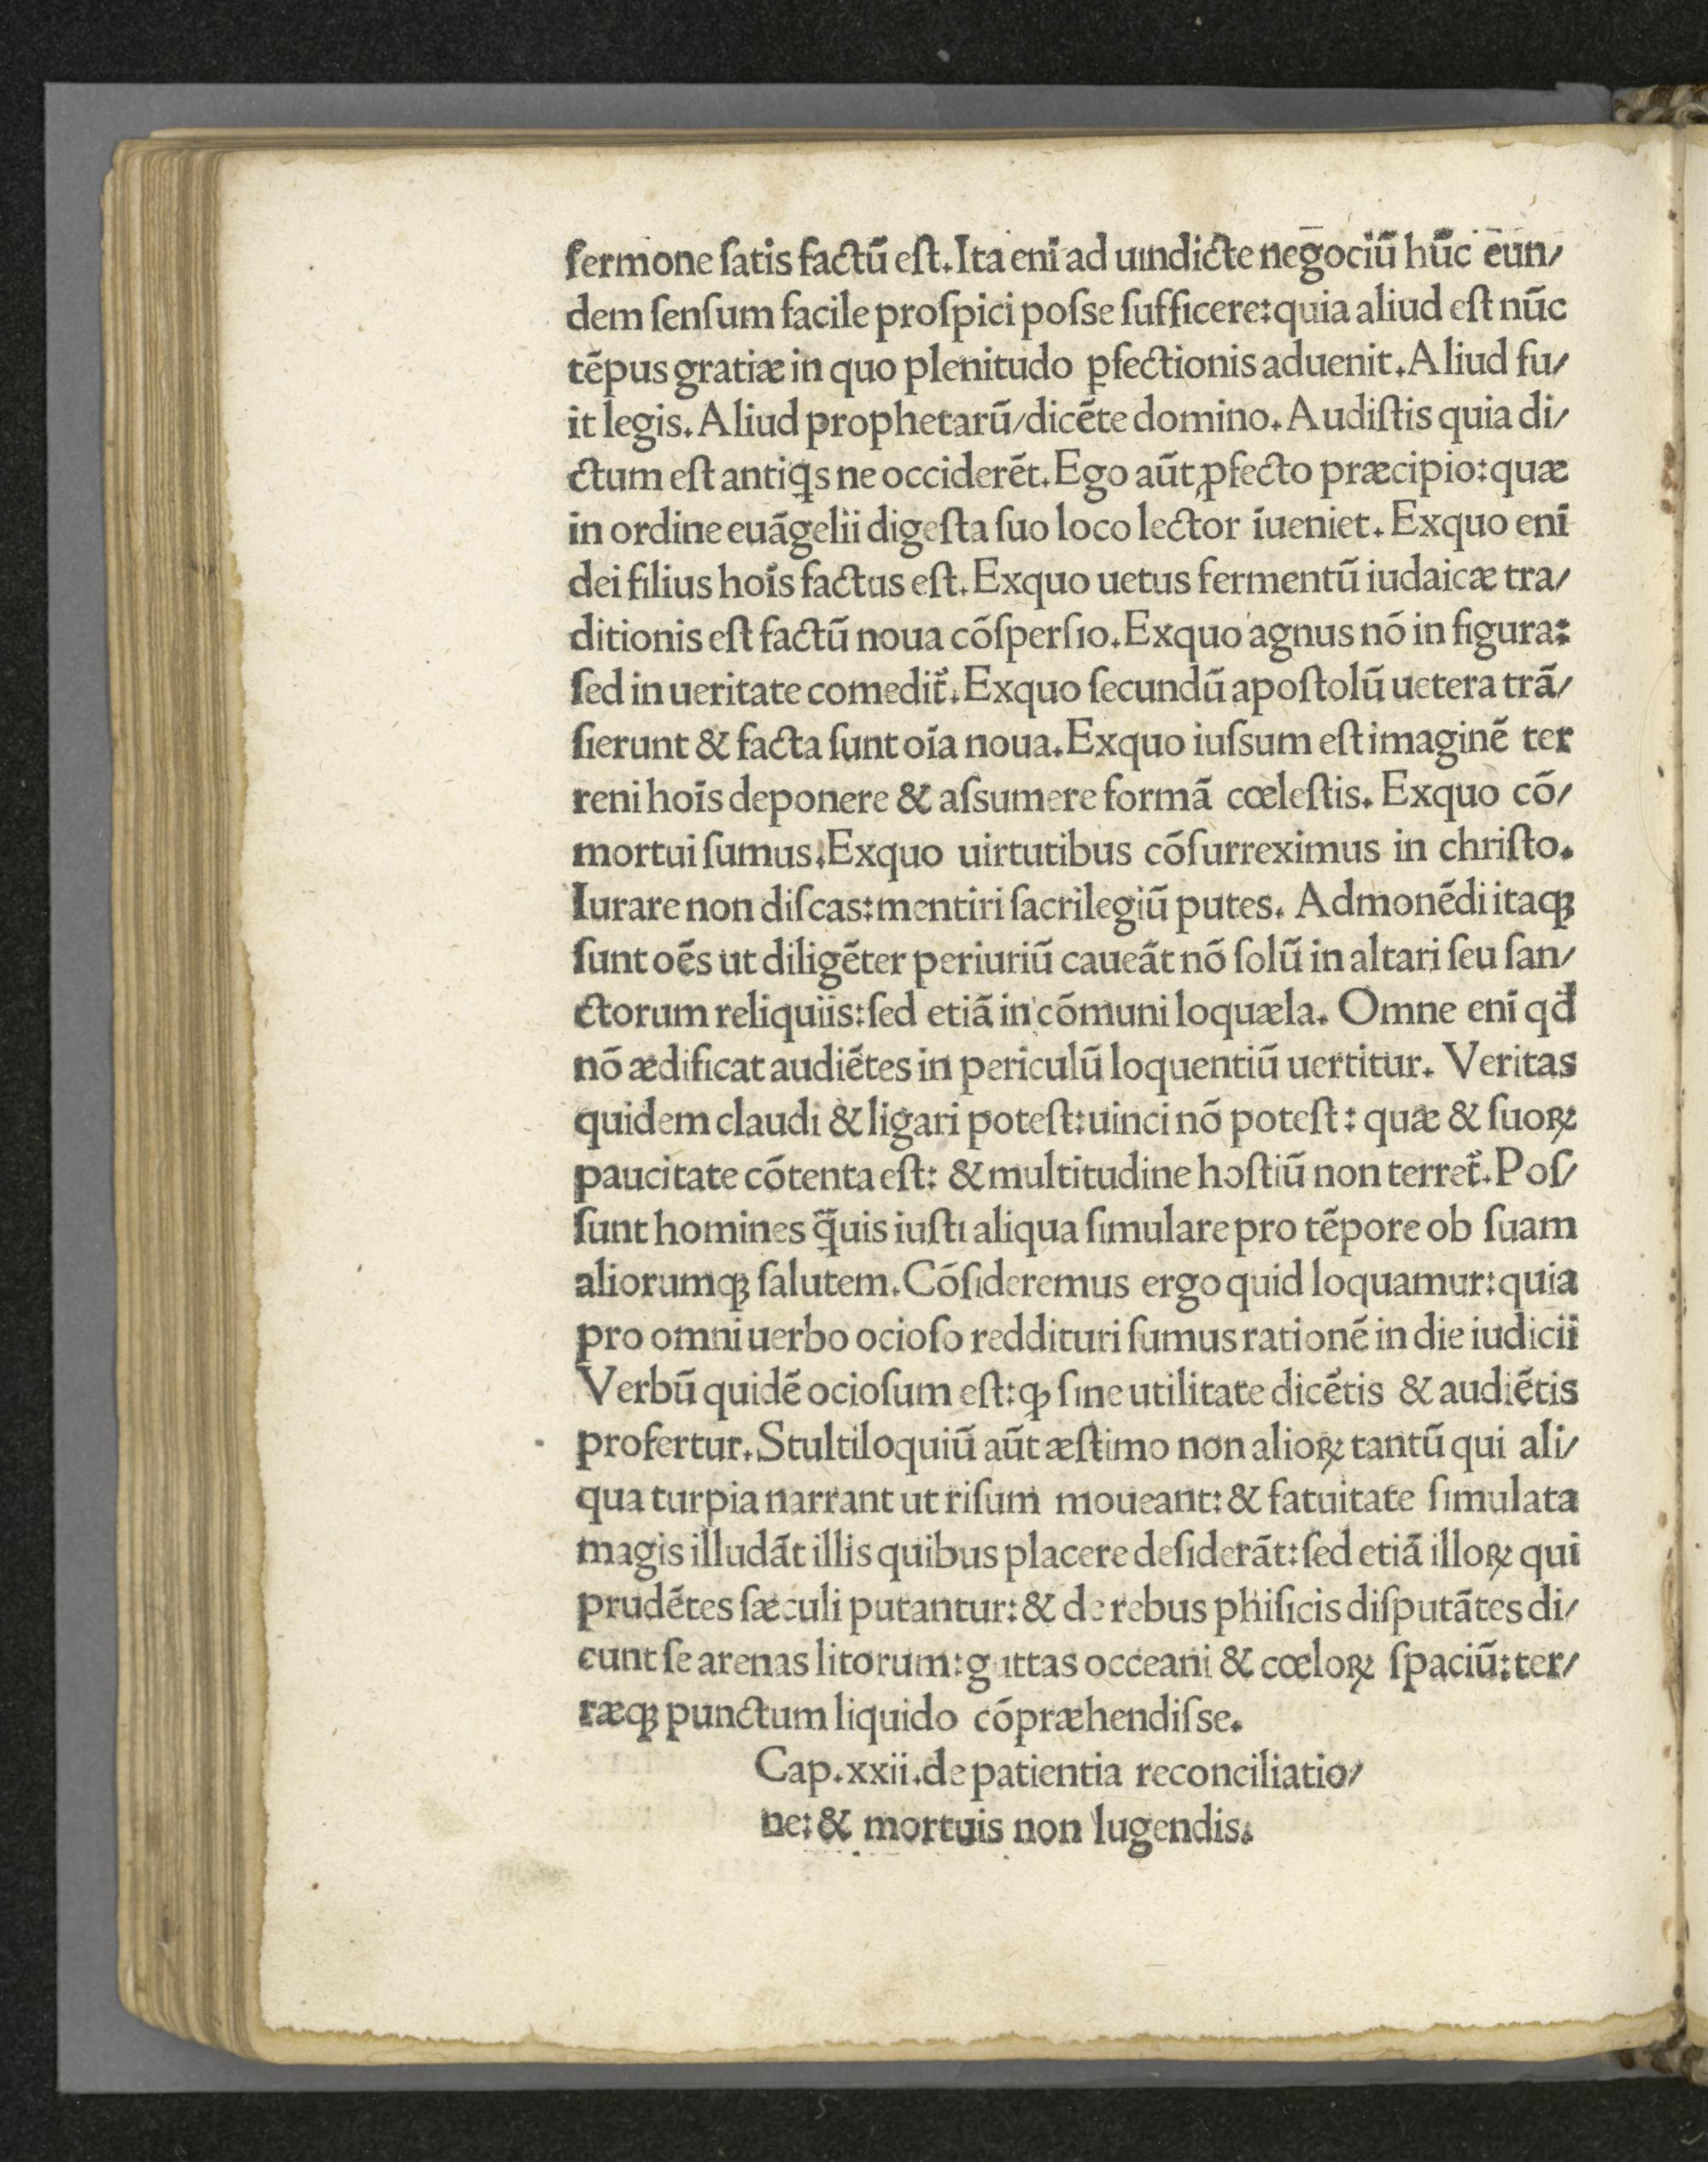 ſermone ſatis factū eſt. Ita enī ad uindicte negociū hūc eun/
dem ſenſum facile proſpici poſse ſufficere: quia aliud eſt nūc
tēpus gratiæ in quo plenitudo ꝑfectionis aduenit. Aliud fu/
it legis. Aliud prophetarū/dicēte domino. Audiſtis quia di/
ctum eſt antiq̨s ne occiderēt. Ego aūt ꝓfecto præcipio: quæ
in ordine euāgelii digeſta ſuo loco lector īueniet. Exquo enī
dei filius hoīs factus eſt. Exquo uetus fermentū iudaicæ tra/
ditionis eſt factū noua cōſperſio. Exquo agnus nō in figura:
ſed in ueritate comedit᷑. Exquo ſecundū apoſtolū uetera trā/
ſierunt & facta ſunt oīa noua. Exquo iuſsum eſt imaginē ter
reni hoīs deponere & aſsumere formā cœleſtis. Exquo cō/
mortui ſumus. Exquo uirtutibus cōſurreximus in chriſto.
Iurare non diſcas: mentiri ſacrilegiū putes. Admonēdi itaqꝫ
ſunt oēs ut diligēter periuriū caueāt nō ſolū in altari ſeu ſan/
ctorum reliquiis: ſed etiā in cōmuni loquæla. Omne enī qđ
nō ædificat audiētes in periculū loquentiū uertitur. Veritas
quidem claudi & ligari poteſt: uinci nō poteſt: quæ & ſuoꝝ
paucitate cōtenta eſt: & multitudine hoſtiū non terret᷑. Poſ/
ſunt homines q̄uis iuſti aliqua ſimulare pro tēpore ob ſuam
aliorumqꝫ ſalutem. Cōſideremus ergo quid loquamur: quia
pro omni uerbo ocioſo reddituri ſumus rationē in die iudicii
Verbū quidē ocioſum eſt: ꝙ ſine utilitate dicētis & audiētis
profertur. Stultiloquiū aūt æſtimo non alioꝝ tantū qui ali/
qua turpia narrant ut riſum moueant: & fatuitate ſimulata
magis illudāt illis quibus placere deſiderāt: ſed etiā illoꝝ qui
prudētes ſæculi putantur: & de rebus phiſicis diſputātes di/
cunt ſe arenas litorum: guttas occeani & cœloꝝ ſpaciū: ter/
ræqꝫ punctum liquido cōpræhendiſse.
Cap. xxii. de patientia reconciliatio/
ne: & mortuis non lugendis.